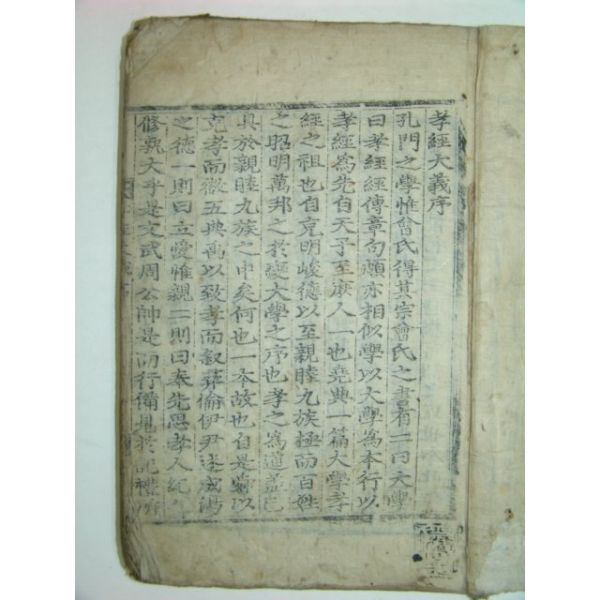 孝經大義序
孔門之學惟曾氏得其宗曾氏之書有二曰大學
曰孝經經傳章句頗亦相似學以大學爲本行以
孝經爲先自天子至庶人一也堯典一篇大學孝
經之祖也自克明峻德以至親睦九族極而百姓
之昭明萬邦之於變大學之序也孝之爲道蓋已
具於親睦九族之中矣何也一本故也自是舜以
克孝而徽五典禹以致孝而敍彝倫伊尹述成湯
之德一則曰立愛惟親二則曰奉先思孝人紀
修孰大乎是文武周公帥是而行備見於記禮